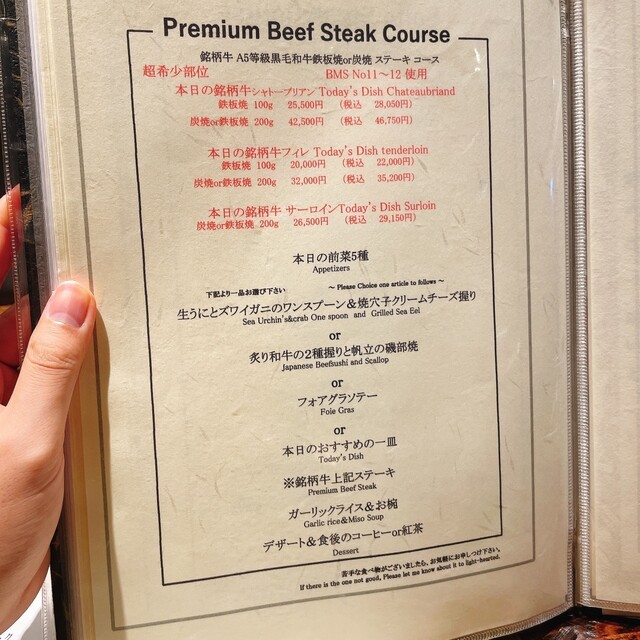 Premium Beef Steak Course
銘柄牛 A5等級黒毛和牛鉄板焼or炭焼 ステーキ コース
超希少部位 BMS No11～12 使用
本日の銘柄牛シャトーブリアン Today's Dish Chateaubriand
鉄板焼 100g 25,500円 (税込 28,050円)
炭焼or鉄板焼 200g 42,500円 (税込 46,750円)
本日の銘柄牛フィレ Today's Dish tenderloin
鉄板焼 100g 20,000円 (税込 22,000円)
炭焼or鉄板焼 200g 32,000円 (税込 35,200円)
本日の銘柄牛 サーロインToday's Dish Surloin
炭焼or鉄板焼 200g 26,500円 (税込 29,150円)
本日の前菜5種
Appetizers
下記より一品お選び下さい ～ Please Choice one article to follows ～
生うにとズワイガニのワンスプーン＆焼穴子クリームチーズ握り
Sea Urchin's&crab One spoon and Grilled Sea Eel
or
炙り和牛の2種握りと帆立の磯部焼
Japanese Beefsushi and Scallop
or
フォアグラソテー
Foie Gras
or
本日のおすすめの一皿
Today's Dish
※銘柄牛上記ステーキ
Premium Beef Steak
ガーリックライス＆お椀
Garlic rice&Miso Soup
デザート＆食後のコーヒーor紅茶
Dessert
苦手な食べ物がございましたら、お気軽にお申しつけ下さい。
If there is the one not good, Please let me know about it to light-hearted.